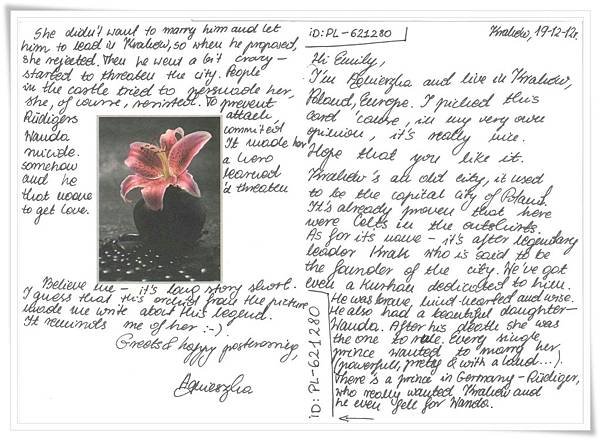 ID: PL-621280
Kraków, 19-12-12r.
Hi Emily,
I'm Agnieszka and live in Kraków,
Poland, Europe. I picked this
card 'cause, in my very own
opinion, it's really nice.
Hope that you like it.
Kraków's an old city, it used
to be the capital city of Poland.
It's already proven that here
were Celts in the outskirts.
As for its name - it's after legendary
leader Krak who is said to be
the founder of the city. We've got
even a Kurhan dedicated to him.
He was brave, kind-hearted and wise.
He also had a beautiful daughter -
Wanda. After his death she was
the one to rule. Every single
prince wanted to marry her
(powerful, pretty & with a land...).
There's a prince in Germany - Rüdiger,
who really wanted Kraków and
he even fell for Wanda.
ID: PL-621280
She didn't want to marry him and let
him to lead in Kraków, so when he proposed,
she rejected. Then he went a bit crazy -
started to threaten the city. People
in the castle tried to persuade her,
she, of course, resisted. To prevent
Rüdigers attack,
Wanda commited
suicide. It made her
somehow a hero
and he learned
that noone'd threaten
to get love.
Believe me - it's long story short.
I guess that this orchid from the picture
made me write about this legend.
It reminds me of her :-)
Greets & happy postcrossing,
Agnieszka